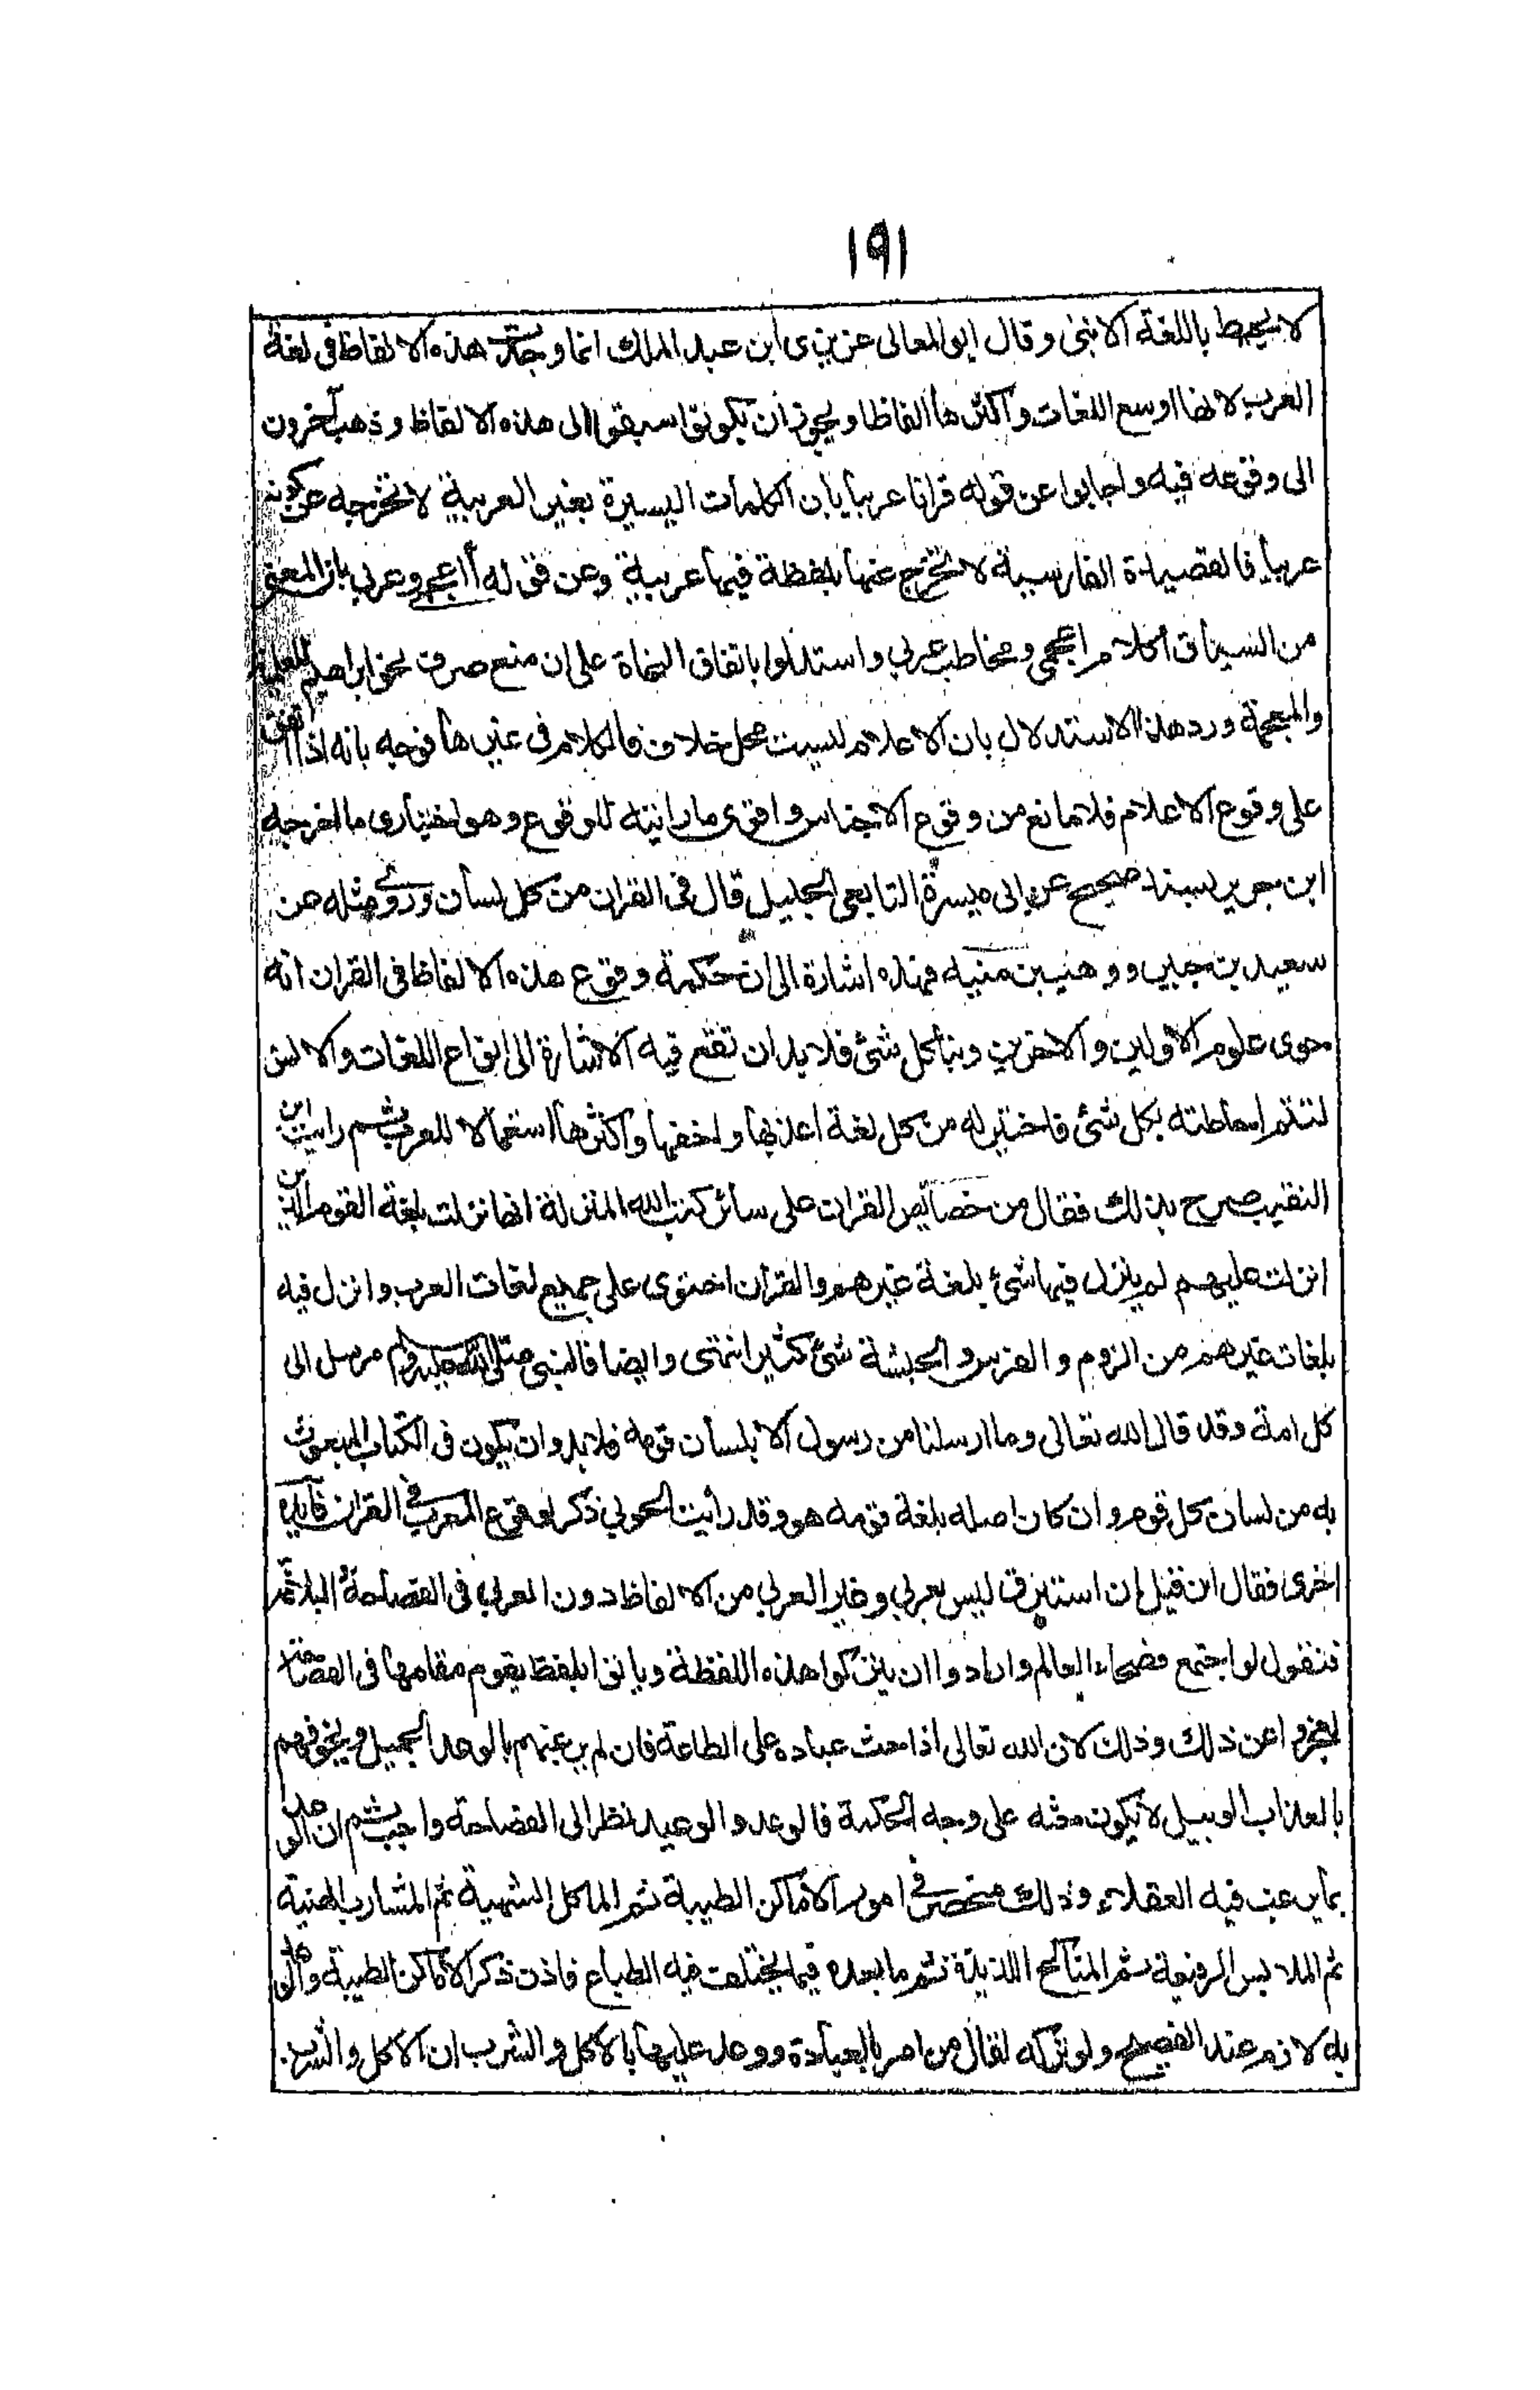 ١٩١
لا يحيط باللغة الا نبي وقال ابو المعالى عزيزى ابن عبد الملك انما وجدت هذه الالفاظ فى لغة
العرب لانها اوسع اللغات واكثرها الفاظا ويجوز ان يكونوا سبقوا الى هذه الالفاظ وذهب اخرون
الى وقوعه فيه واجابوا عن قوله قرانا عربيا بان الكلمات اليسيرة بغير العربية لا تخرجه عن كونه
عربيا فالقصيدة الفارسية لا تخرج عنها بلفظة فيها عربية وعن قوله أاعجمى وعربى بان المعنى
من السياق اكلام اعجمى ومخاطب عربى واستدلوا باتفاق النحاة على ان منع صرف نحو ابراهيم للعلمية
والعجمة ورد هذا الاستدلال بان الاعلام ليست محل خلاف فالكلام فى غيرها فوجه بانه اذا اتفق
على وقوع الاعلام فلا مانع من وقوع الاجناس واقوى ما رايته للوقوع وهو اختيارى ما اخرجه
ابن جرير بسند صحيح عن ابى ميسرة التابعى الجليل قال فى القران من كل لسان وروى مثله عن
سعيد بن جبير ووهب بن منبه فهذه اشارة الى ان حكمة وقوع هذه الالفاظ فى القران انه
حوى علوم الاولين والاخرين ونبأ كل شئ فلا بد ان تقع فيه الاشارة الى انواع اللغات والالسن
لتتم احاطته بكل شئ فاختير له من كل لغة اعذبها واخفها واكثرها استعمالا للعرب ثم رايت ابن
النقيب صرح بذلك فقال من خصائص القران على سائر كتب الله المنزلة انها نزلت بلغة القوم الذين
انزلت عليهم لم ينزل فيها شئ بلغة غيرهم والقران احتوى على جميع لغات العرب وانزل فيه
بلغات غيرهم من الروم والفرس والحبشة شئ كثير انتهى وايضا فالنبى صلى الله عليه وسلم مرسل الى
كل امة وقد قال الله تعالى وما ارسلنا من رسول الا بلسان قومه فلا بد وان يكون فى الكتاب المبعوث
به من لسان كل قوم وان كان اصله بلغة قومه هو وقد رأيت الحوبى ذكر لوقوع المعرب فى القران فايدة
اخرى فقال ان قيل ان استبرق ليس بعربى وغير العربى من الالفاظ دون العربى فى الفصاحة والبلاغة
فنقول لو اجتمع فصحاء العالم وارادوا ان يتركوا هذه اللفظة وياتوا بلفظ يقوم مقامها فى الفصاحة
لعجزوا عن ذلك وذلك لان الله تعالى اذا حث عباده على الطاعة فان لم يرغبهم بالوعد الجميل ويخوفهم
بالعذاب الوبيل لا يكون حثه على وجه الحكمة فالوعد والوعيد نظرا الى الفصاحة واجب ثم ان الوعد
بما يرغب فيه العقلاء وذلك منحصر فى امور الاماكن الطيبة ثم الماكل الشهية ثم المشارب الهنية
ثم الملابس الرفيعة ثم المناكح اللذيذة ثم ما بعده فيما يختلف فيه الطباع فاذن ذكر الاماكن الطيبة والوعد
به لازم عند الفصيح ولو تركه لقال من امر بالعبادة ووعد عليها بالاكل والشرب ان الاكل والشرب